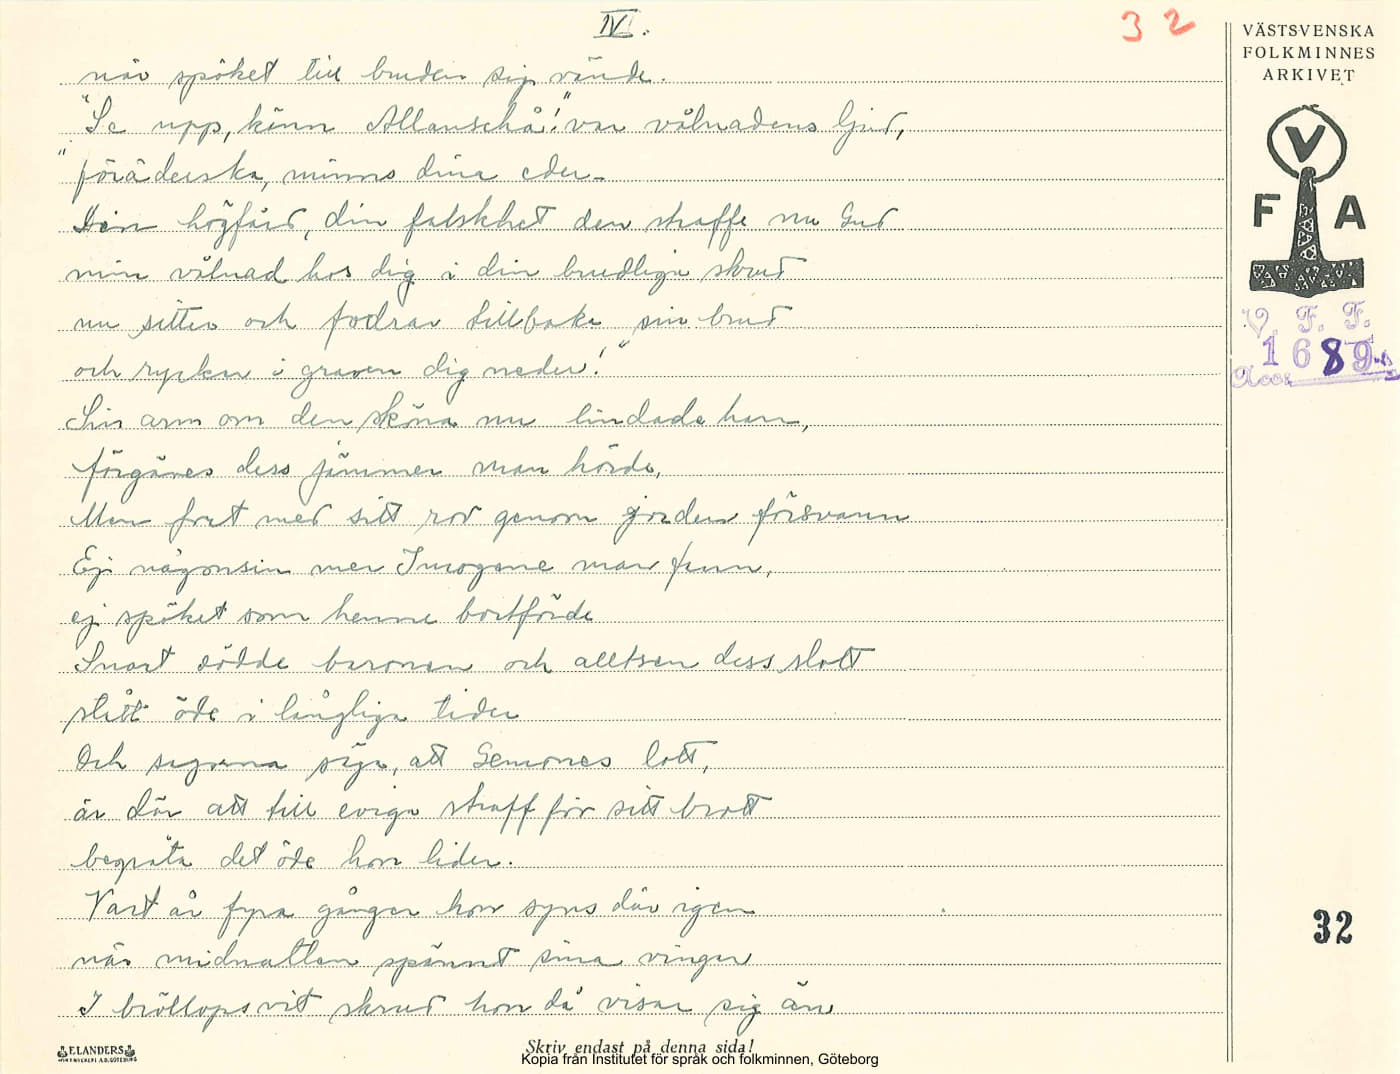 IV.
32
när spöket till bruden sig vände.
"Se upp, känn Allanschå!" var vålnadens ljud,
"föräderska, minns dina eder.
Din högfärd, din falskhet den straffe nu Gud
min vålnad hos dig i din brudliga skrud
nu sitter och fodrar tillbaka sin brud
och rycker i graven dig neder!"
Sin arm om den sköna nu lindade han,
förgäves dess jämmer man hörde,
Men fort med sitt rov genom jorden försvann
Ej någonsin mer Imogene man fann,
ej spöket som henne bortförde
Snart dödde baronen och alltsen dess slott
stått öde i långliga tider
Och sagorna säga, att Gemones lott,
är där att till eviga straff för sitt brott
begråta det öde hon lider.
Vart år fyra gånger hon syns där igen
när midnatten spännt sina vingar
I bröllopsvit skrud hon då visar sig än
VÄSTSVENSKA
FOLKMINNES
ARKIVET
V
F A
V. F. F.
1689
Acc.
32
ELANDERS
Skriv endast på denna sida!
Kopia från Institutet för språk och folkminnen, Göteborg